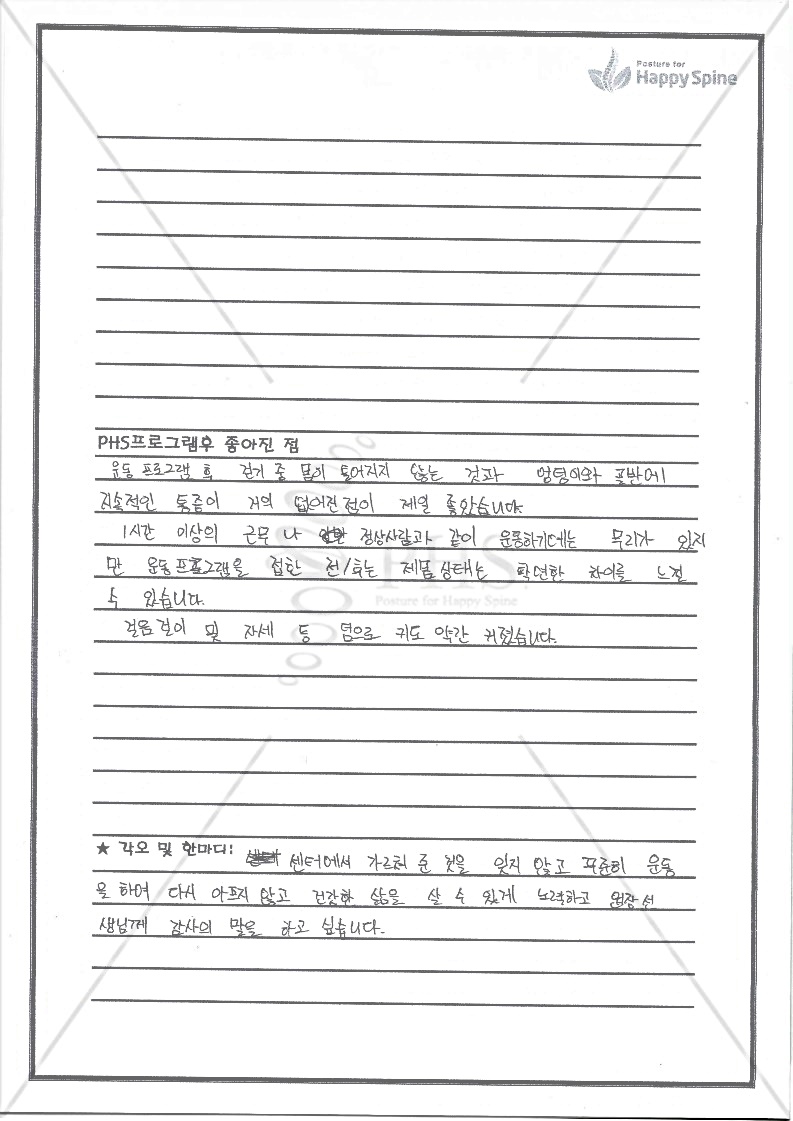 Posture for
Happy Spine
PHS프로그램후 좋아진 점
운동 프로그램 후 걷기 중 몸이 틀어지지 않는 것과 엉덩이와 골반에
지속적인 통증이 거의 없어진 점이 제일 좋았습니다.
1시간 이상의 근무 나 정상사람과 같이 운동하기에는 무리가 있지
만 운동프로그램을 접한 전/후는 제 몸 상태는 확연한 차이를 느낄
수 있습니다.
PHS
Posture for Happy Spine
걸음걸이 및 자세 등 덤으로 키도 약간 커졌습니다.
★ 각오 및 한마디! 센터에서 가르쳐 준 것을 잊지 않고 꾸준히 운동
을 하여 다시 아프지 않고 건강한 삶을 살 수 있게 노력하고 원장선
생님께 감사의 말을 하고 싶습니다.